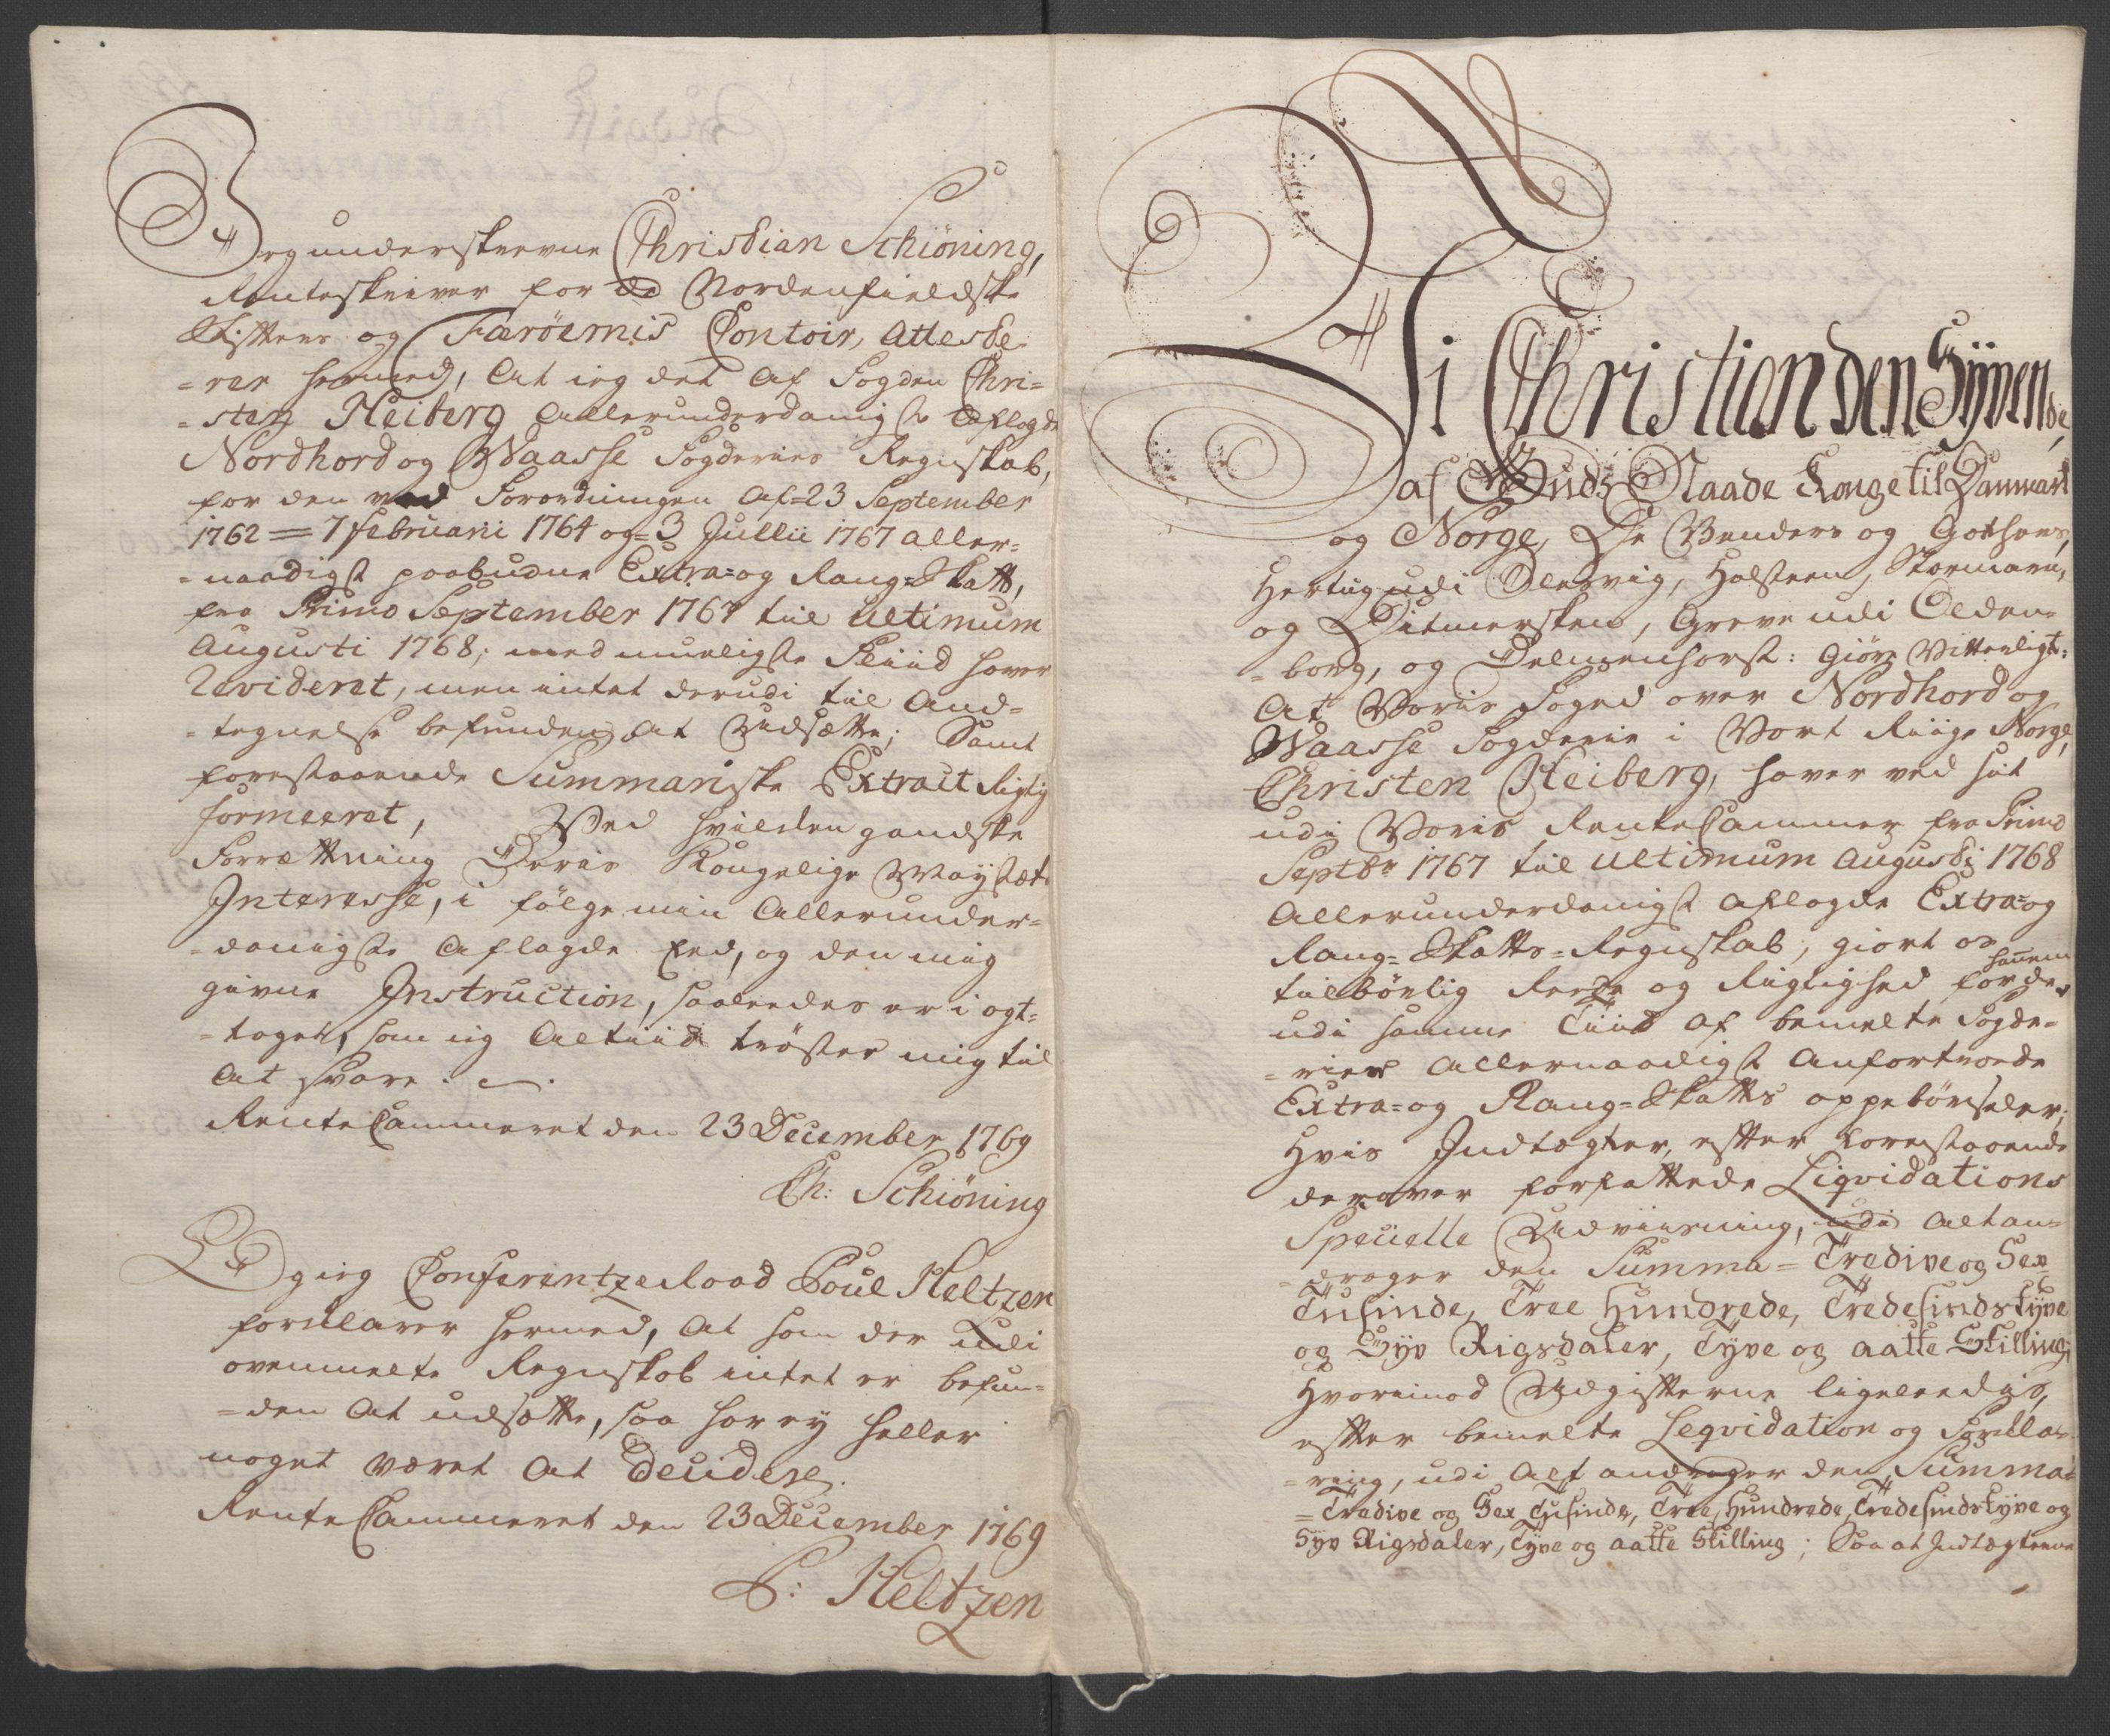 Jeg underskrevne Christian Schiöning,
Renteskriver for de Nordenfieldske
Stifters og Færöernis Contoir, Atteste-
=rer hermed, At ieg det Af Fogden Chri=
=sten Heiberg Allerunderdanigste Aflagde
Nordhord og Waasse Fogderies Regnskab,
for den ved Forordningen Af=23 September
1762 = 7 Februarii 1764 og=3 Jullii 1767 aller=
=naadigst paabudne Extra=og Rang=Skatt,
fra Primo September 1767 til Ultimum
Augusti 1768; med mueligste Fliid haver
Revideret, men intet derudi til And=
=tegnelse befunden At Udsætte; Samt
forestaaende Summariske Extract Rigtig
formeeret, Ved hvilken gandske
Forrættning Deris Kongelige Mayestæts
Interesse, i fölge min Allerunder=
=danigste Aflagde Eed, og den mig
givne Instruction, saaledes er i agt=
=tagen, som ieg Altiid tröster mig til
At svare.
RenteCammeret den 23 December 1769
Ch: Schiöning
Og ieg Conferentzeraad Poul Heltzen
forklarer hermed, At som der udi
ovenmelte Regnskab intet er befun=
=den At udsætte, saa har ey heller
noget været At Decidere.
RenteCammeret den 23 December 1769
P: Heltzen
Vi Christian den Syvende,
af Guds Naade Konge til Danmark
og Norge, De Venders og Gothers,
Hertug udi Slesvig, Holsteen, Stormarn,
og Ditmersken, Greve udi Olden=
=borg, og Delmenhorst: Giöre Vitterligt:
At Voris Foged over Nordhord og
Waasse Fogderie i Vort Riige Norge,
Christen Heiberg, haver ved sit
udi Voris RenteCammer fra Primo
Septbr 1767 til Ultimum Augusti 1768
Allerunderdanigst Aflagde Extra=og
Rang=Skatts=Regnskab, giort os
tilbörlig Rede og Rigtighed for de hannem
udi samme Tiid af bemelte Fogde=
=rier Allernaadigst Anfortroede
Extra=og Rang=Skatts oppebörseler;
Hvis Indtægter, efter forestaaende
derover forfattede Liqvidations
Specielle Udviisning, udi Alt an=
=drager den Summa= Tredive og Sex
Tusinde, Tree Hundrede, Tredesindstyve
og Syv Rigsdaler, Tyve og aatte Skilling;
Hvorimod Udgifterne ligeleedes,
efter bemelte Leqvidation og Forkla=
=ring, udi Alt andrager den Summa=
=Tredive og Sex Tusinde, Tree Hundrede, Tredesindstyve og
Syv Rigsdaler, Tyve og aatte Skilling; Saa at Indtægterne